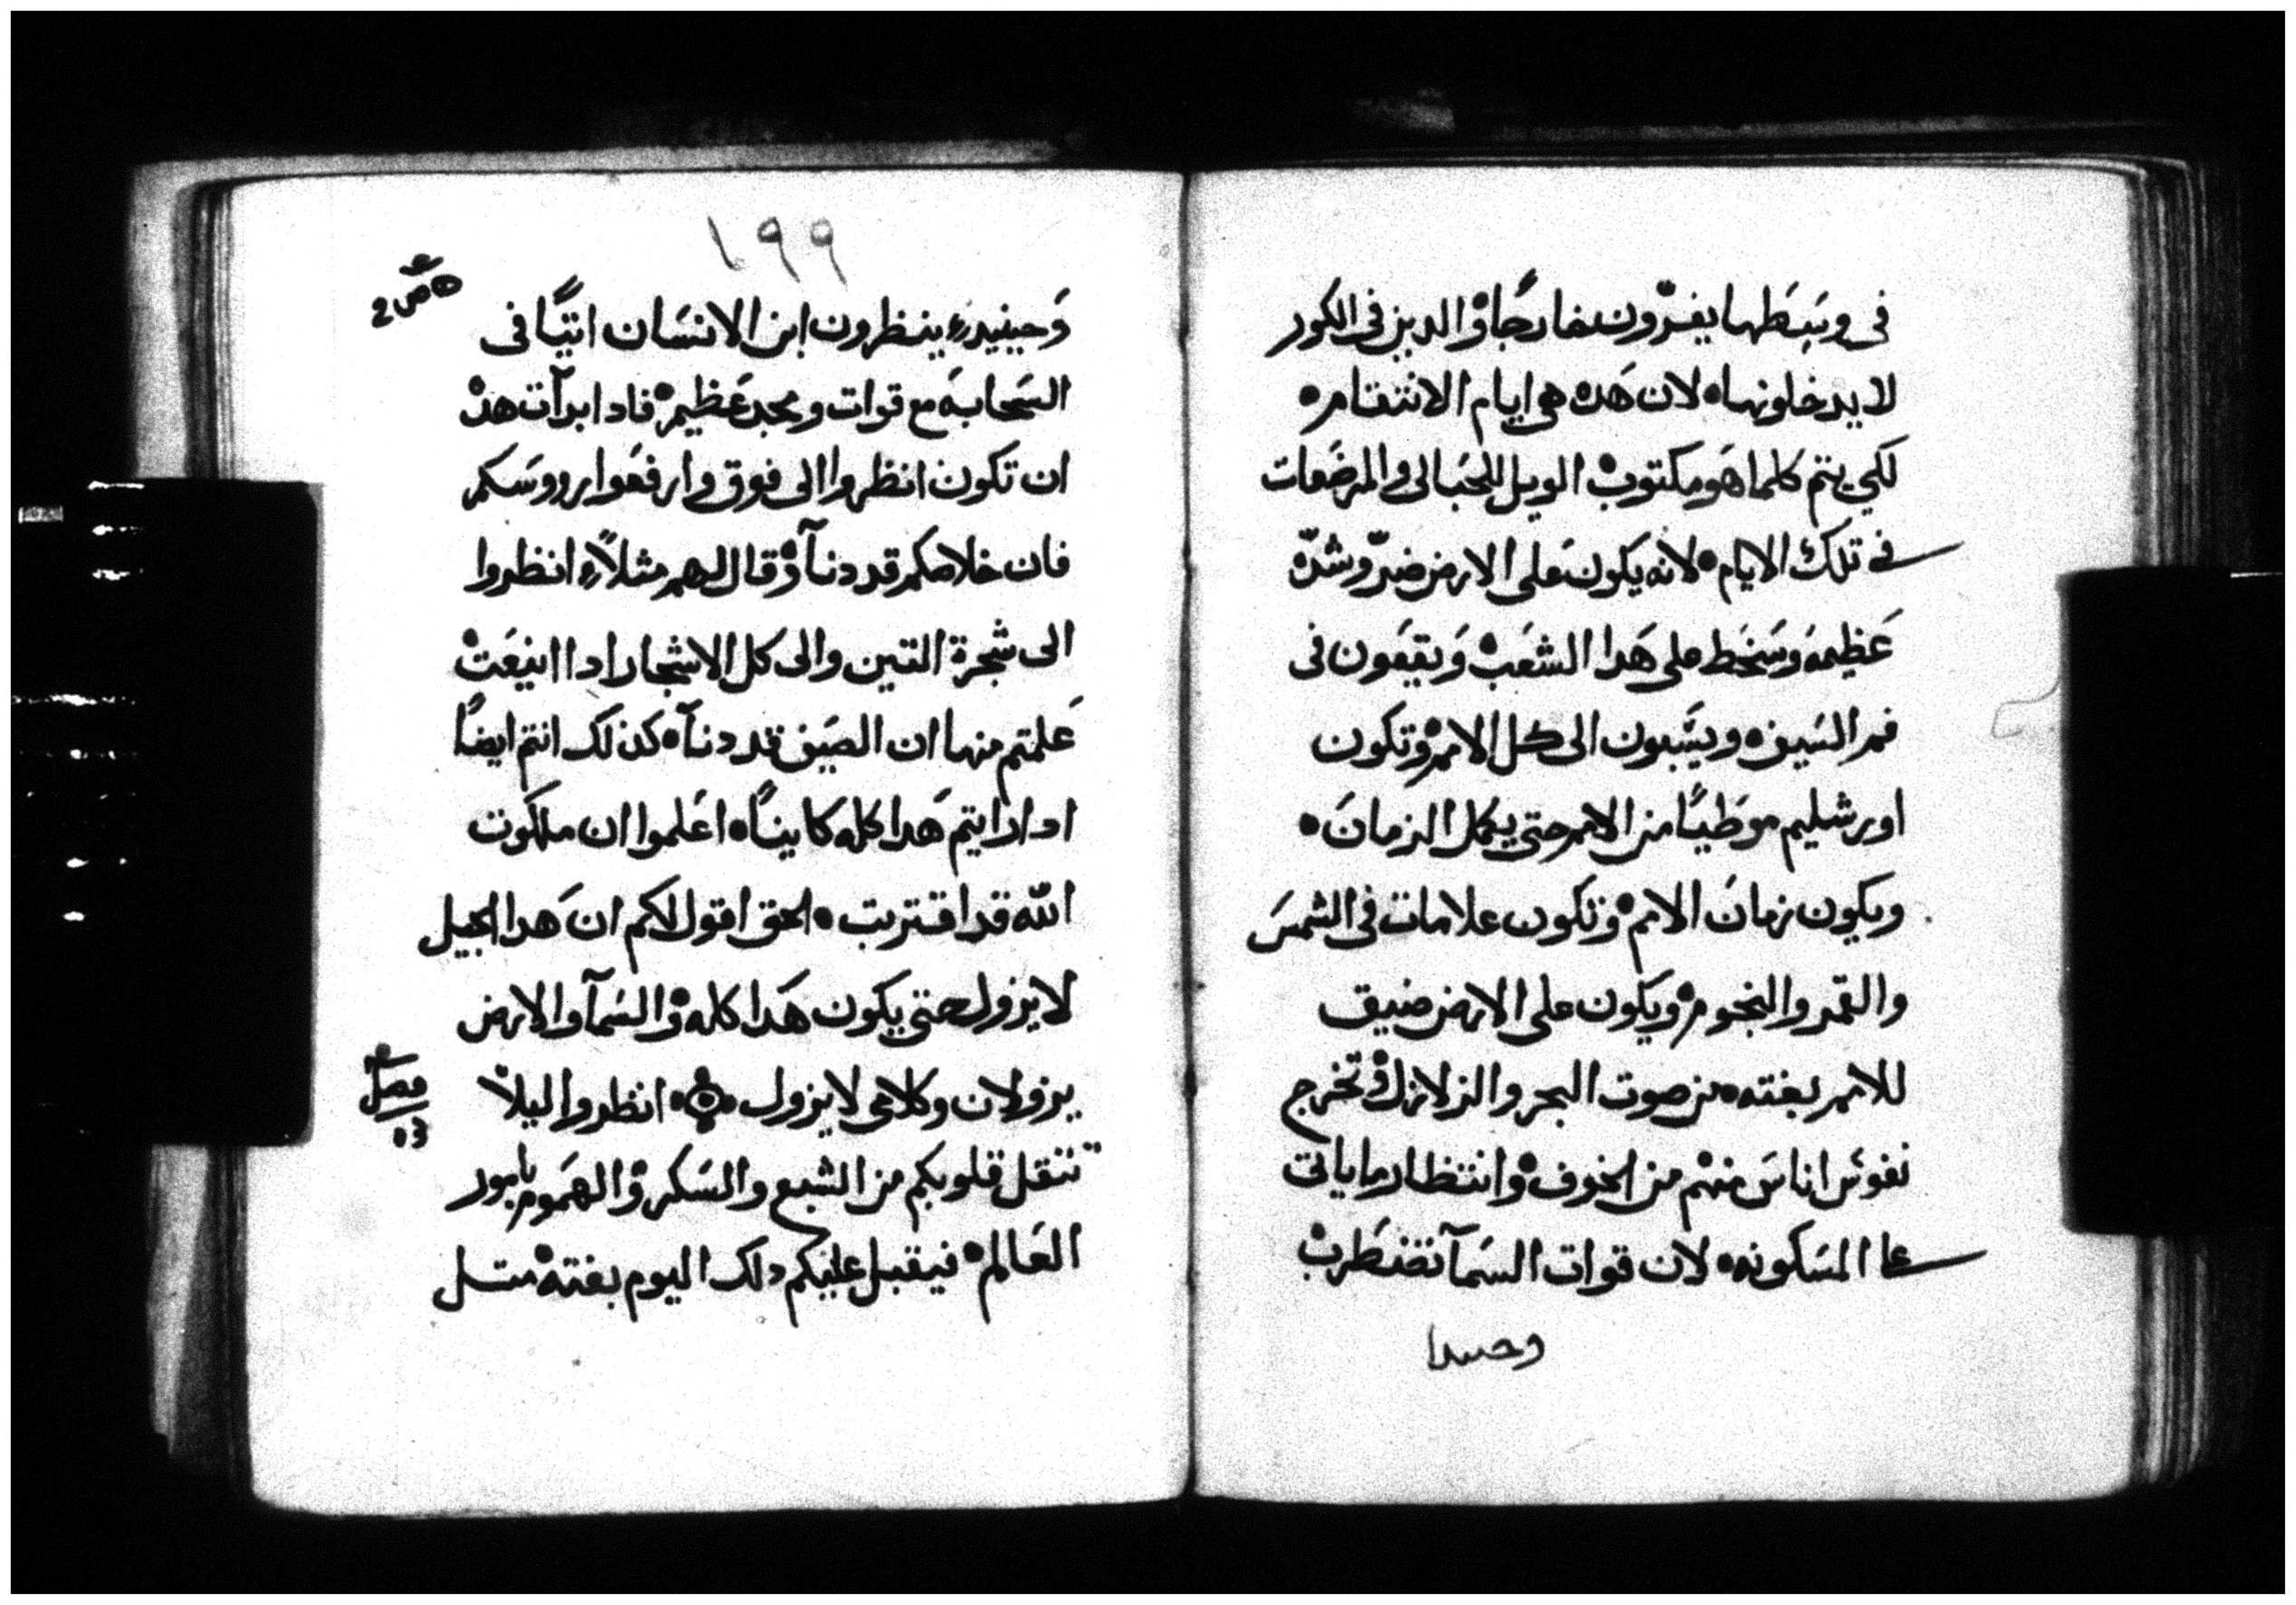 في وسَطها يفرّون خارجًا والدين في الكور
لا يدخلونها لان هَده هي ايام الانتقام
لكي يتم كلما هَو مكتوب الويل للحَبالى والمرضَعات
في تلك الايام لانه يكون على الارض ضرّ وشدّه
عَظيمه وسَخَط على هَدا الشعَب وَيقعَون في
فم السَيف ويسَّبون الى كل الامم وتكون
اورشليم موطَيًا من الامم حتى يكمل الزمانَ
ويكون زمانَ الامم وتكون علامات في الشمسَ
والقمر والنجوم ويكون على الارض ضيق
للامم بغته من صوت البحر والزلازل وتخرج
نفوسَ اناسَ منهْم من الخوف وانتظار ما ياتي
على المسَكونه لان قوات السَمآ تضطَرب
وحسدا
١٩٩
وَحينيدٍ ينظرون ابن الانسَان اتيًا في
السَحابه مع قوات ومجد عَظيم فادا بدآت هده
ان تكون انظروا الى فوق وارفعَوا رووسَكم
فان خلاصكم قد دنآ وقال لهم مثلاً انظروا
الى شجرة التين والى كل الاشجار ادا اينعَت
عَلمتم منها ان الصَيف قد دنآ كذلك انتم ايضًا
ادا رايتم هَدا كله كاينًا اعَلموا ان ملكوت
الله قد اقتربت الحق اقول لاكم ان هَدا الجيل
لا يزول حتى يكون هَدا كله والسَمآ والارض
يزولان وكلامي لا يزول انظروا ليلا
فصل
تتقل قلوبكم من الشبع والسَكر والهمَوم بامور
العَالم فيقبل عليكم دلك اليوم بغته متل